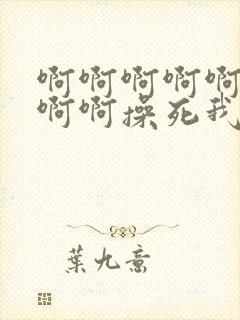 啊啊啊啊啊
啊啊操死我
葉九意